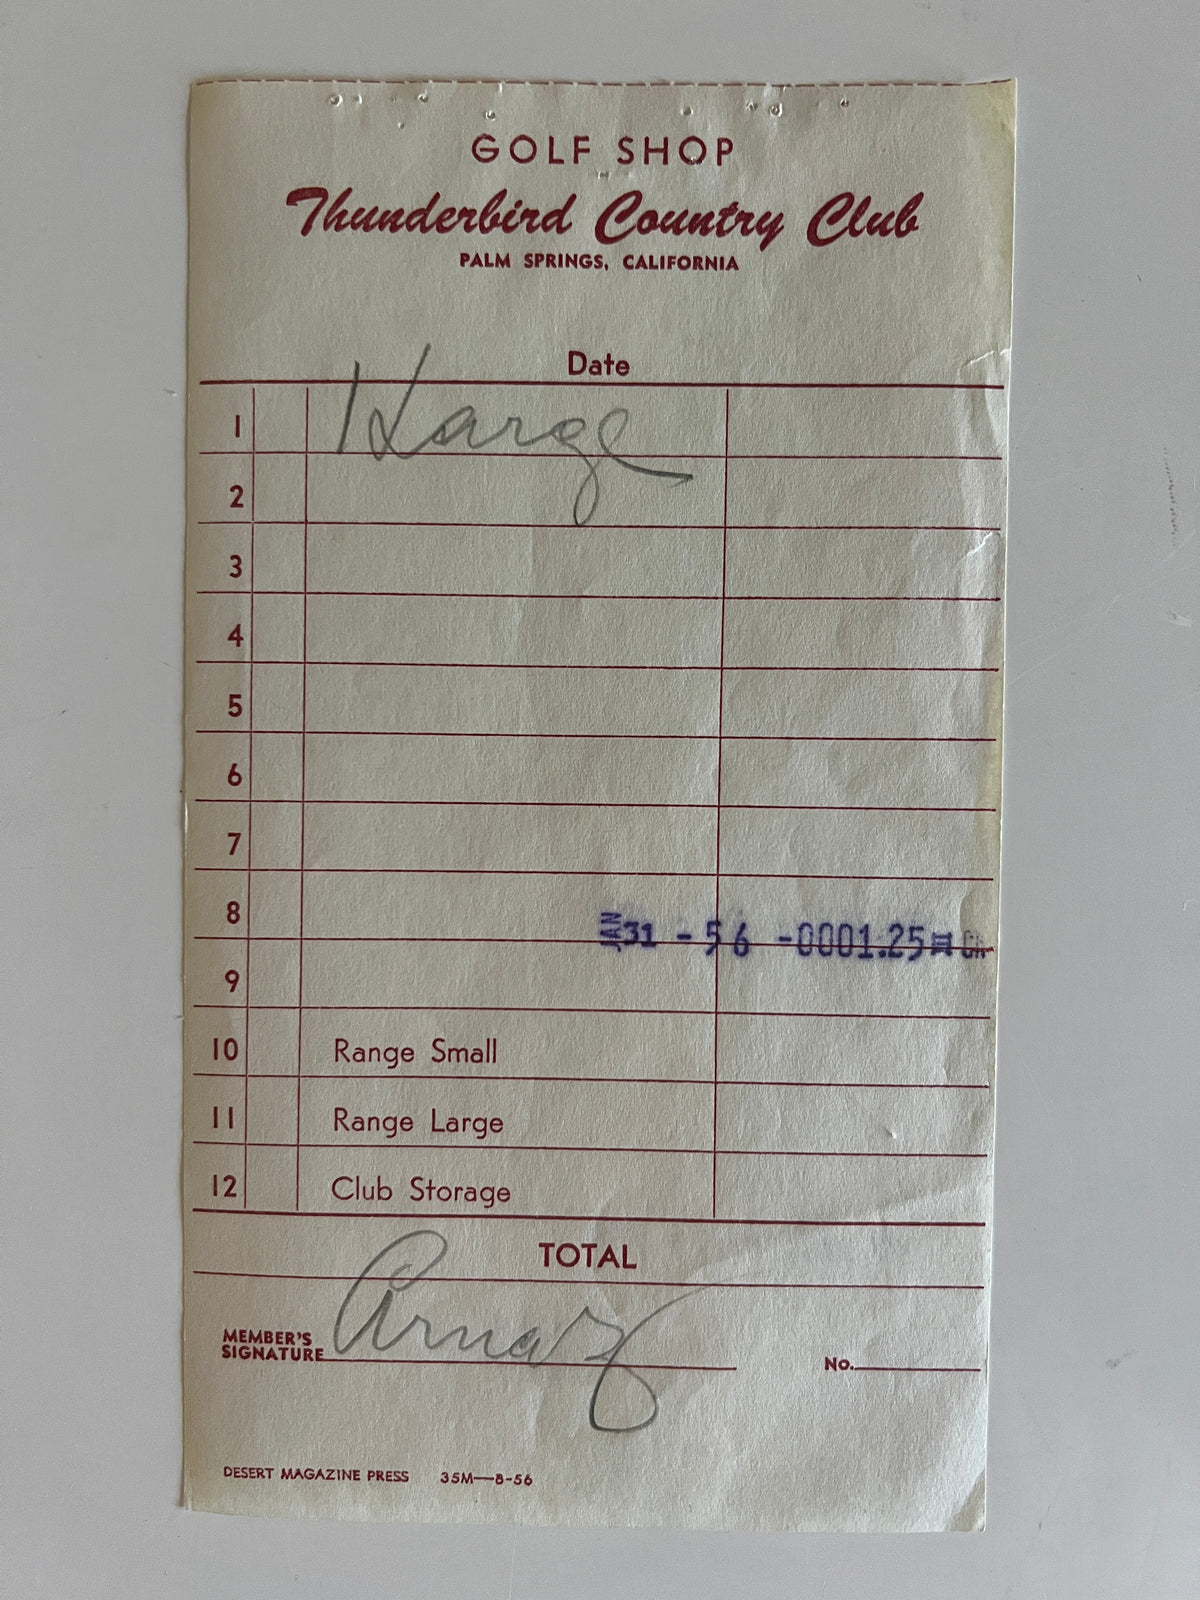 GOLF SHOP
Thunderbird Country Club
PALM SPRINGS, CALIFORNIA
Date
1 1 Large
2
3
4
5
6
7
8
JAN 31 - 56 -0001.25
9
10 Range Small
11 Range Large
12 Club Storage
TOTAL
MEMBER'S
SIGNATURE Arnaz
No.
DESERT MAGAZINE PRESS 35M—8-56